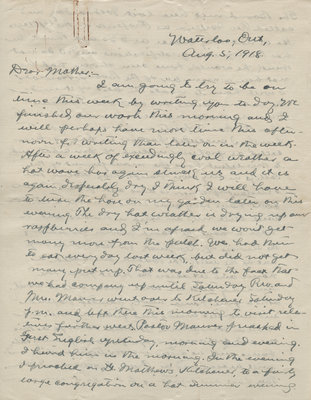 Waterloo, Ont,
Aug. 5, 1918.
Dear Mother:-
I am going to try to be on
time this week by writing you to-day. We
finished our wash this morning and I
will perhaps have more time this after-
noon for writing than later on in the week.
After a week of exceedingly cool weather a
hot wave has again struck us and it is
again dry. I think I will have
to turn the hose on my garden later on this
evening. The dry hot weather is drying up our
raspberries and I'm afraid we won't get
many more from the patch. We had them
to eat every day last week, but did not get
many put up. That was due to the fact that
we had company up until Saturday. Rev. and
Mrs. Maurer went over to Kitchener Saturday
p.m. and left there this morning to visit rela-
tives further west. Pastor Maurer preached in
First English yesterday, morning and evening.
I heard him in the morning. In the evening
I preached in St. Matthews Kitchener, to a fairly
large congregation on a hot summer evening